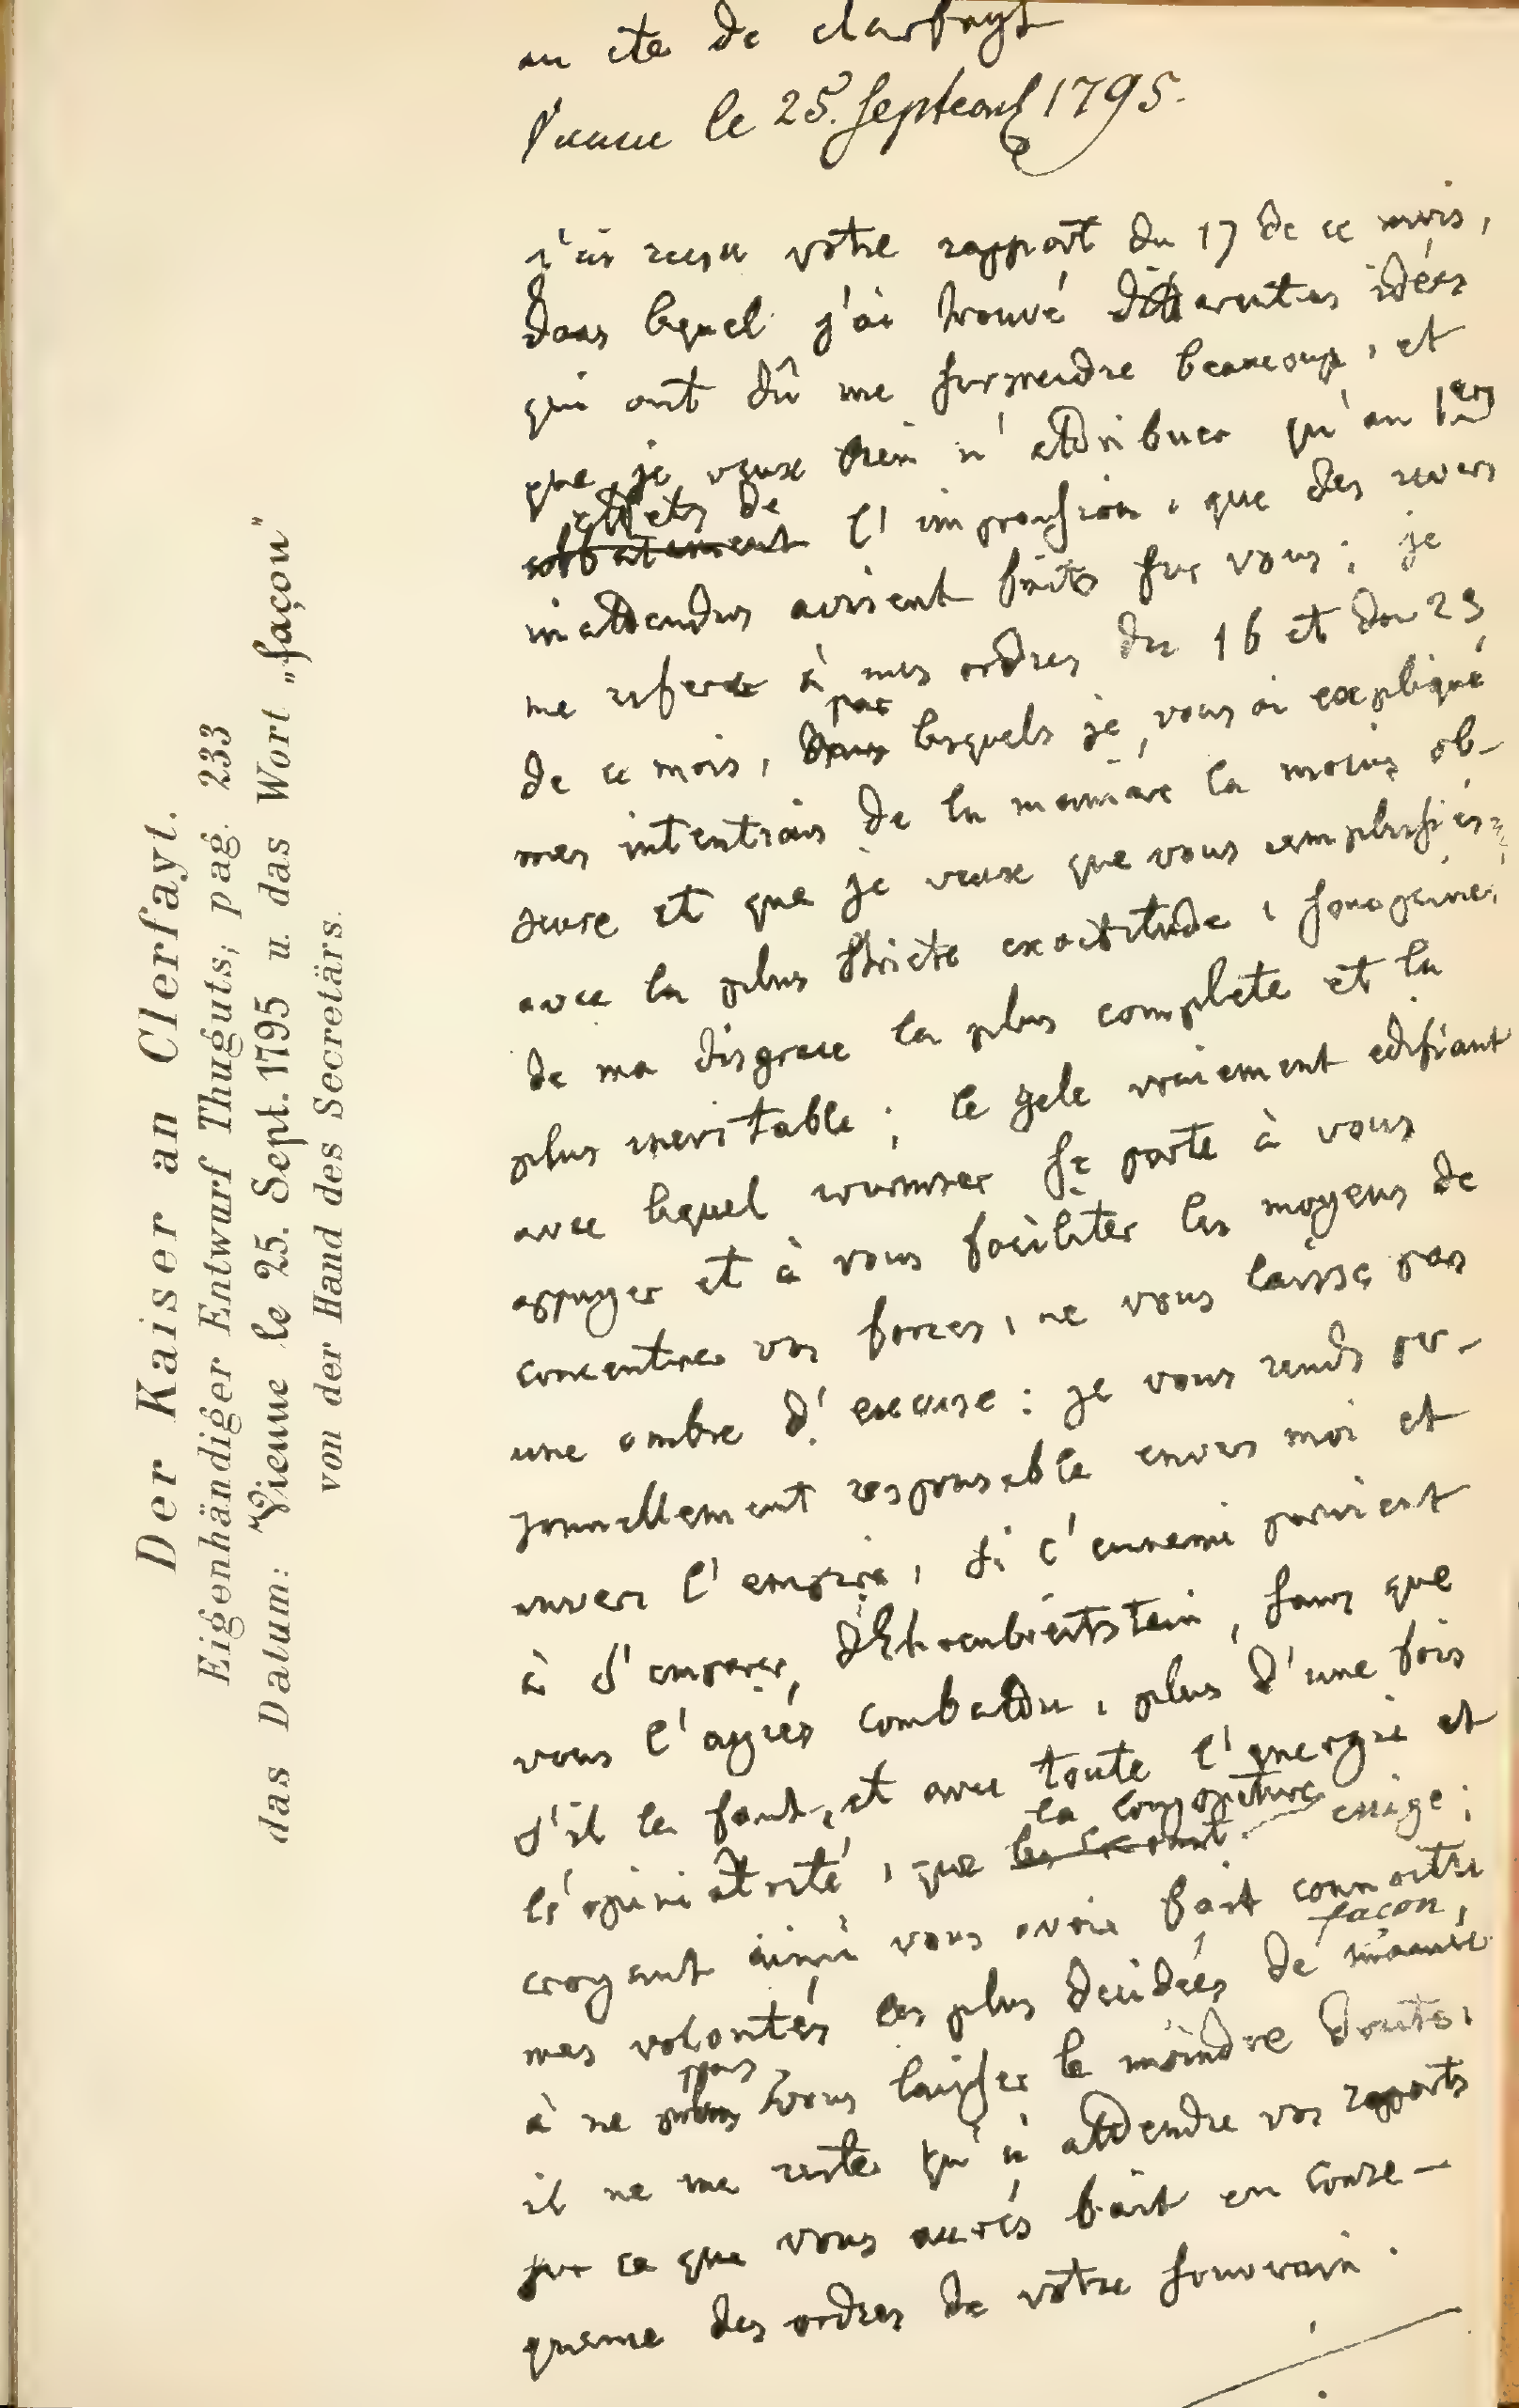 Der Kaiser an Clerfayt.
Eigenhändiger Entwurf Thuguts; pag. 233
das Datum: "Vienne le 25. Sept. 1795 u. das Wort „façon"
von der Hand des Secretärs.
au cte de clerfayt
Vienne le 25. Septemb 1795.
j'ai reçu votre rapport du 17 de ce mois,
dans lequel j'ai trouvé differentes idées
qui ont dû me surprendre beaucoup, et
que je veux bien n'attribuer qu'au 1ers
effets de
abbatement l'impression, que des revers
inattendus avoient faits sur vous; je
me refere à mes ordres du 16 et du 23
par
de ce mois, dans lesquels je vous ai expliqué
mes intentions de la maniere la moins ob-
scure et que je veux que vous remplissiés
avec la plus stricte exactitude, sous peine
de ma disgrace la plus complete et la
plus inevitable; le zele vraiement edifiant
avec lequel wurmser se porte à vous
appuyer et à vous faciliter les moyens de
concentrer vos forces, ne vous laisse pas
une ombre d'excuse: je vous rends per-
sonnellement responsable envers moi et
envers l'empire, si l'ennemi parvient
à s'emparer d'Ehrenbreitstein, sans que
vous l'ayiés combattu, plus d'une fois
s'il le faut, et avec toute l'energie et
la conjoncture
l'opiniâtreté, que les exige;
croyant ainsi vous avoir fait connoitre
façon,
mes volontés les plus decidées de maniere
pas
à ne plus vous laisser le moindre doute,
il ne me reste qu'à attendre vos rapports
sur ce que vous aurés fait en conse-
quence des ordres de votre souverain.